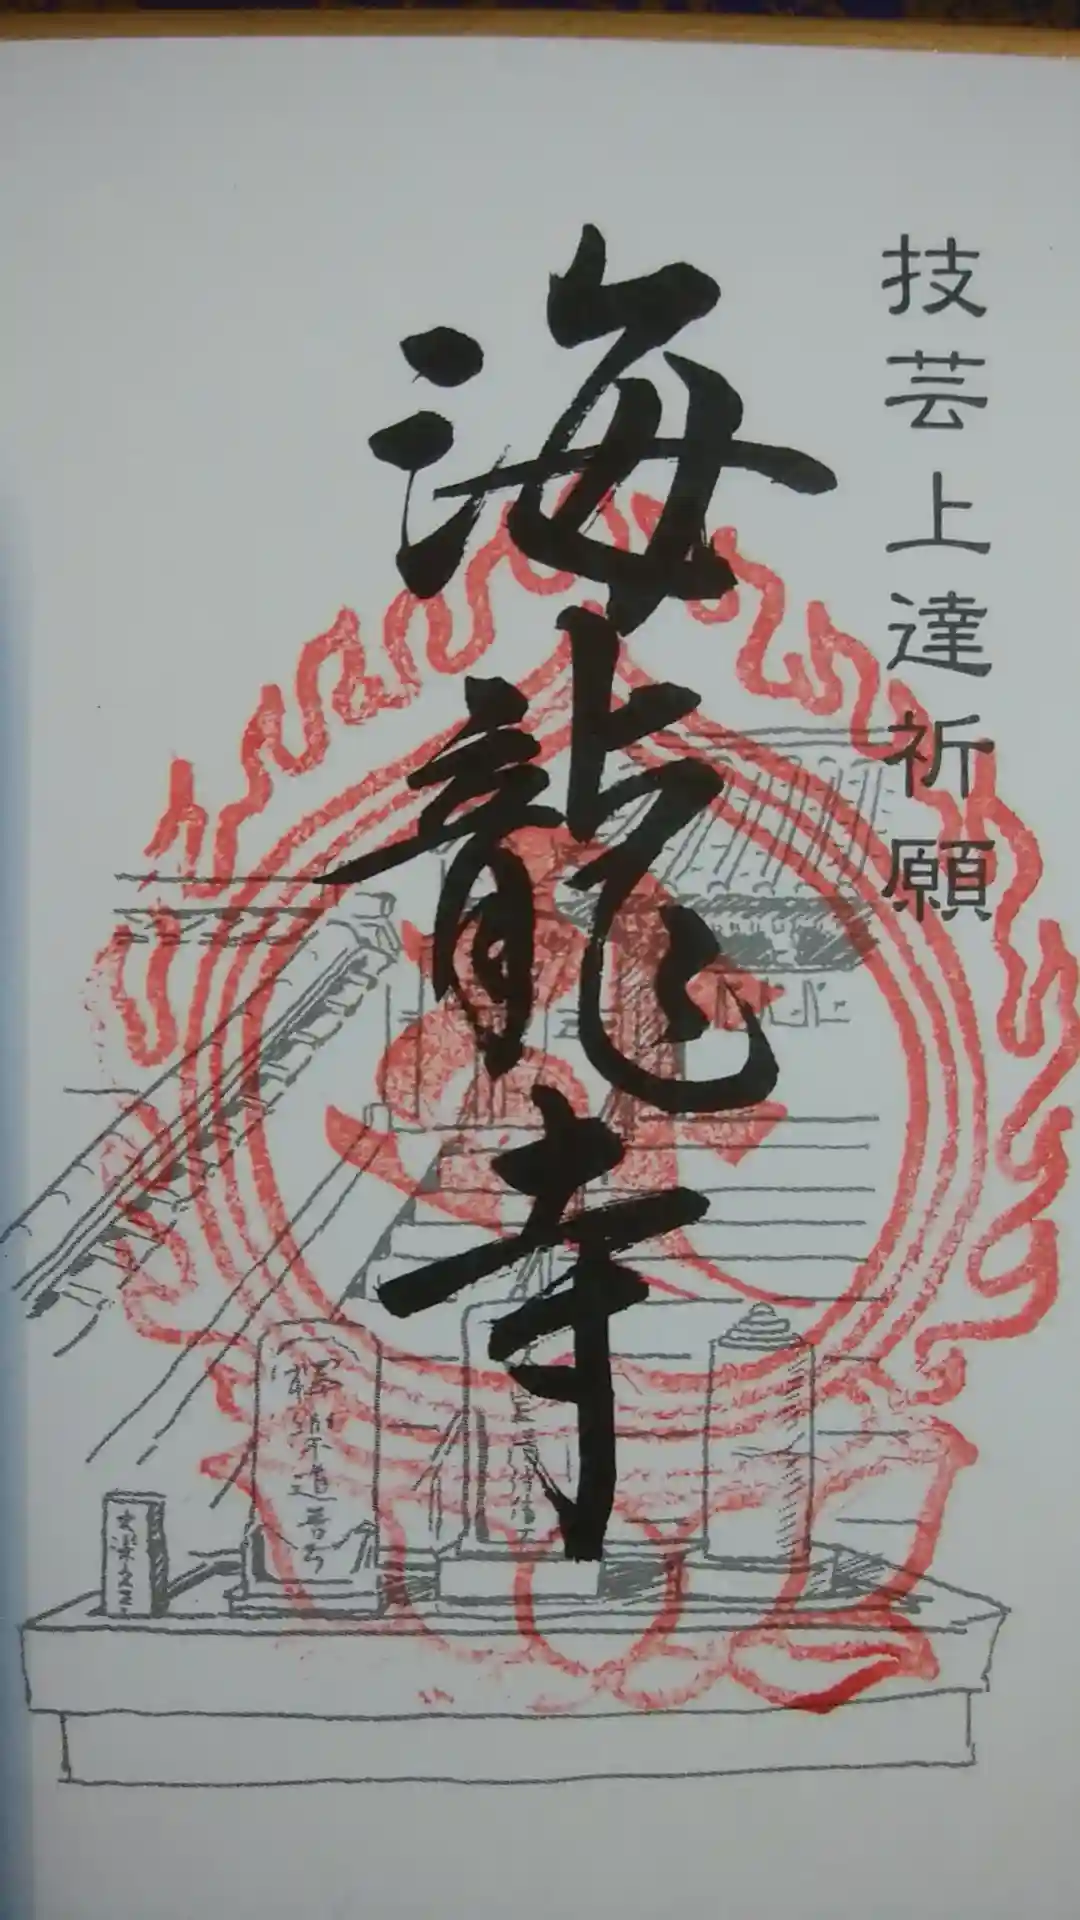 技芸上達祈願
海龍寺